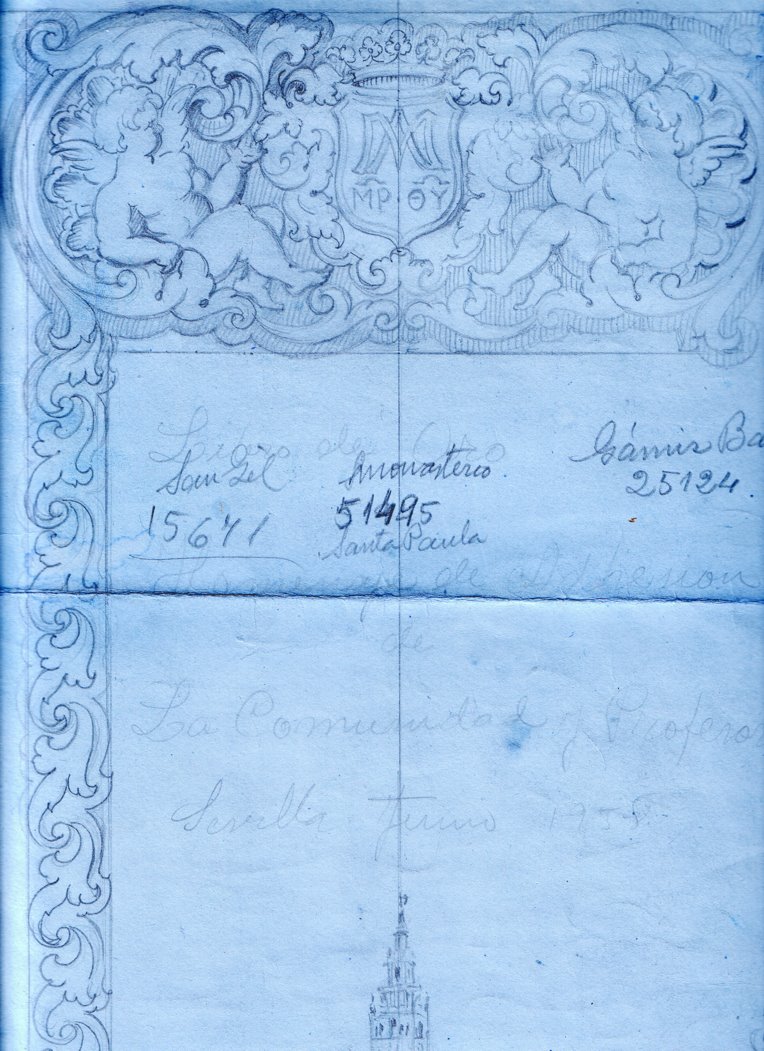 M
ΜΡ ΘΥ
Libro de Oro
San Gil
15641
Monasterio
51495
Santa Paula
Gámir Ba
25124
Homenaje de Adhesion
de
La Comunidad y Profeso
Sevilla Junio 195